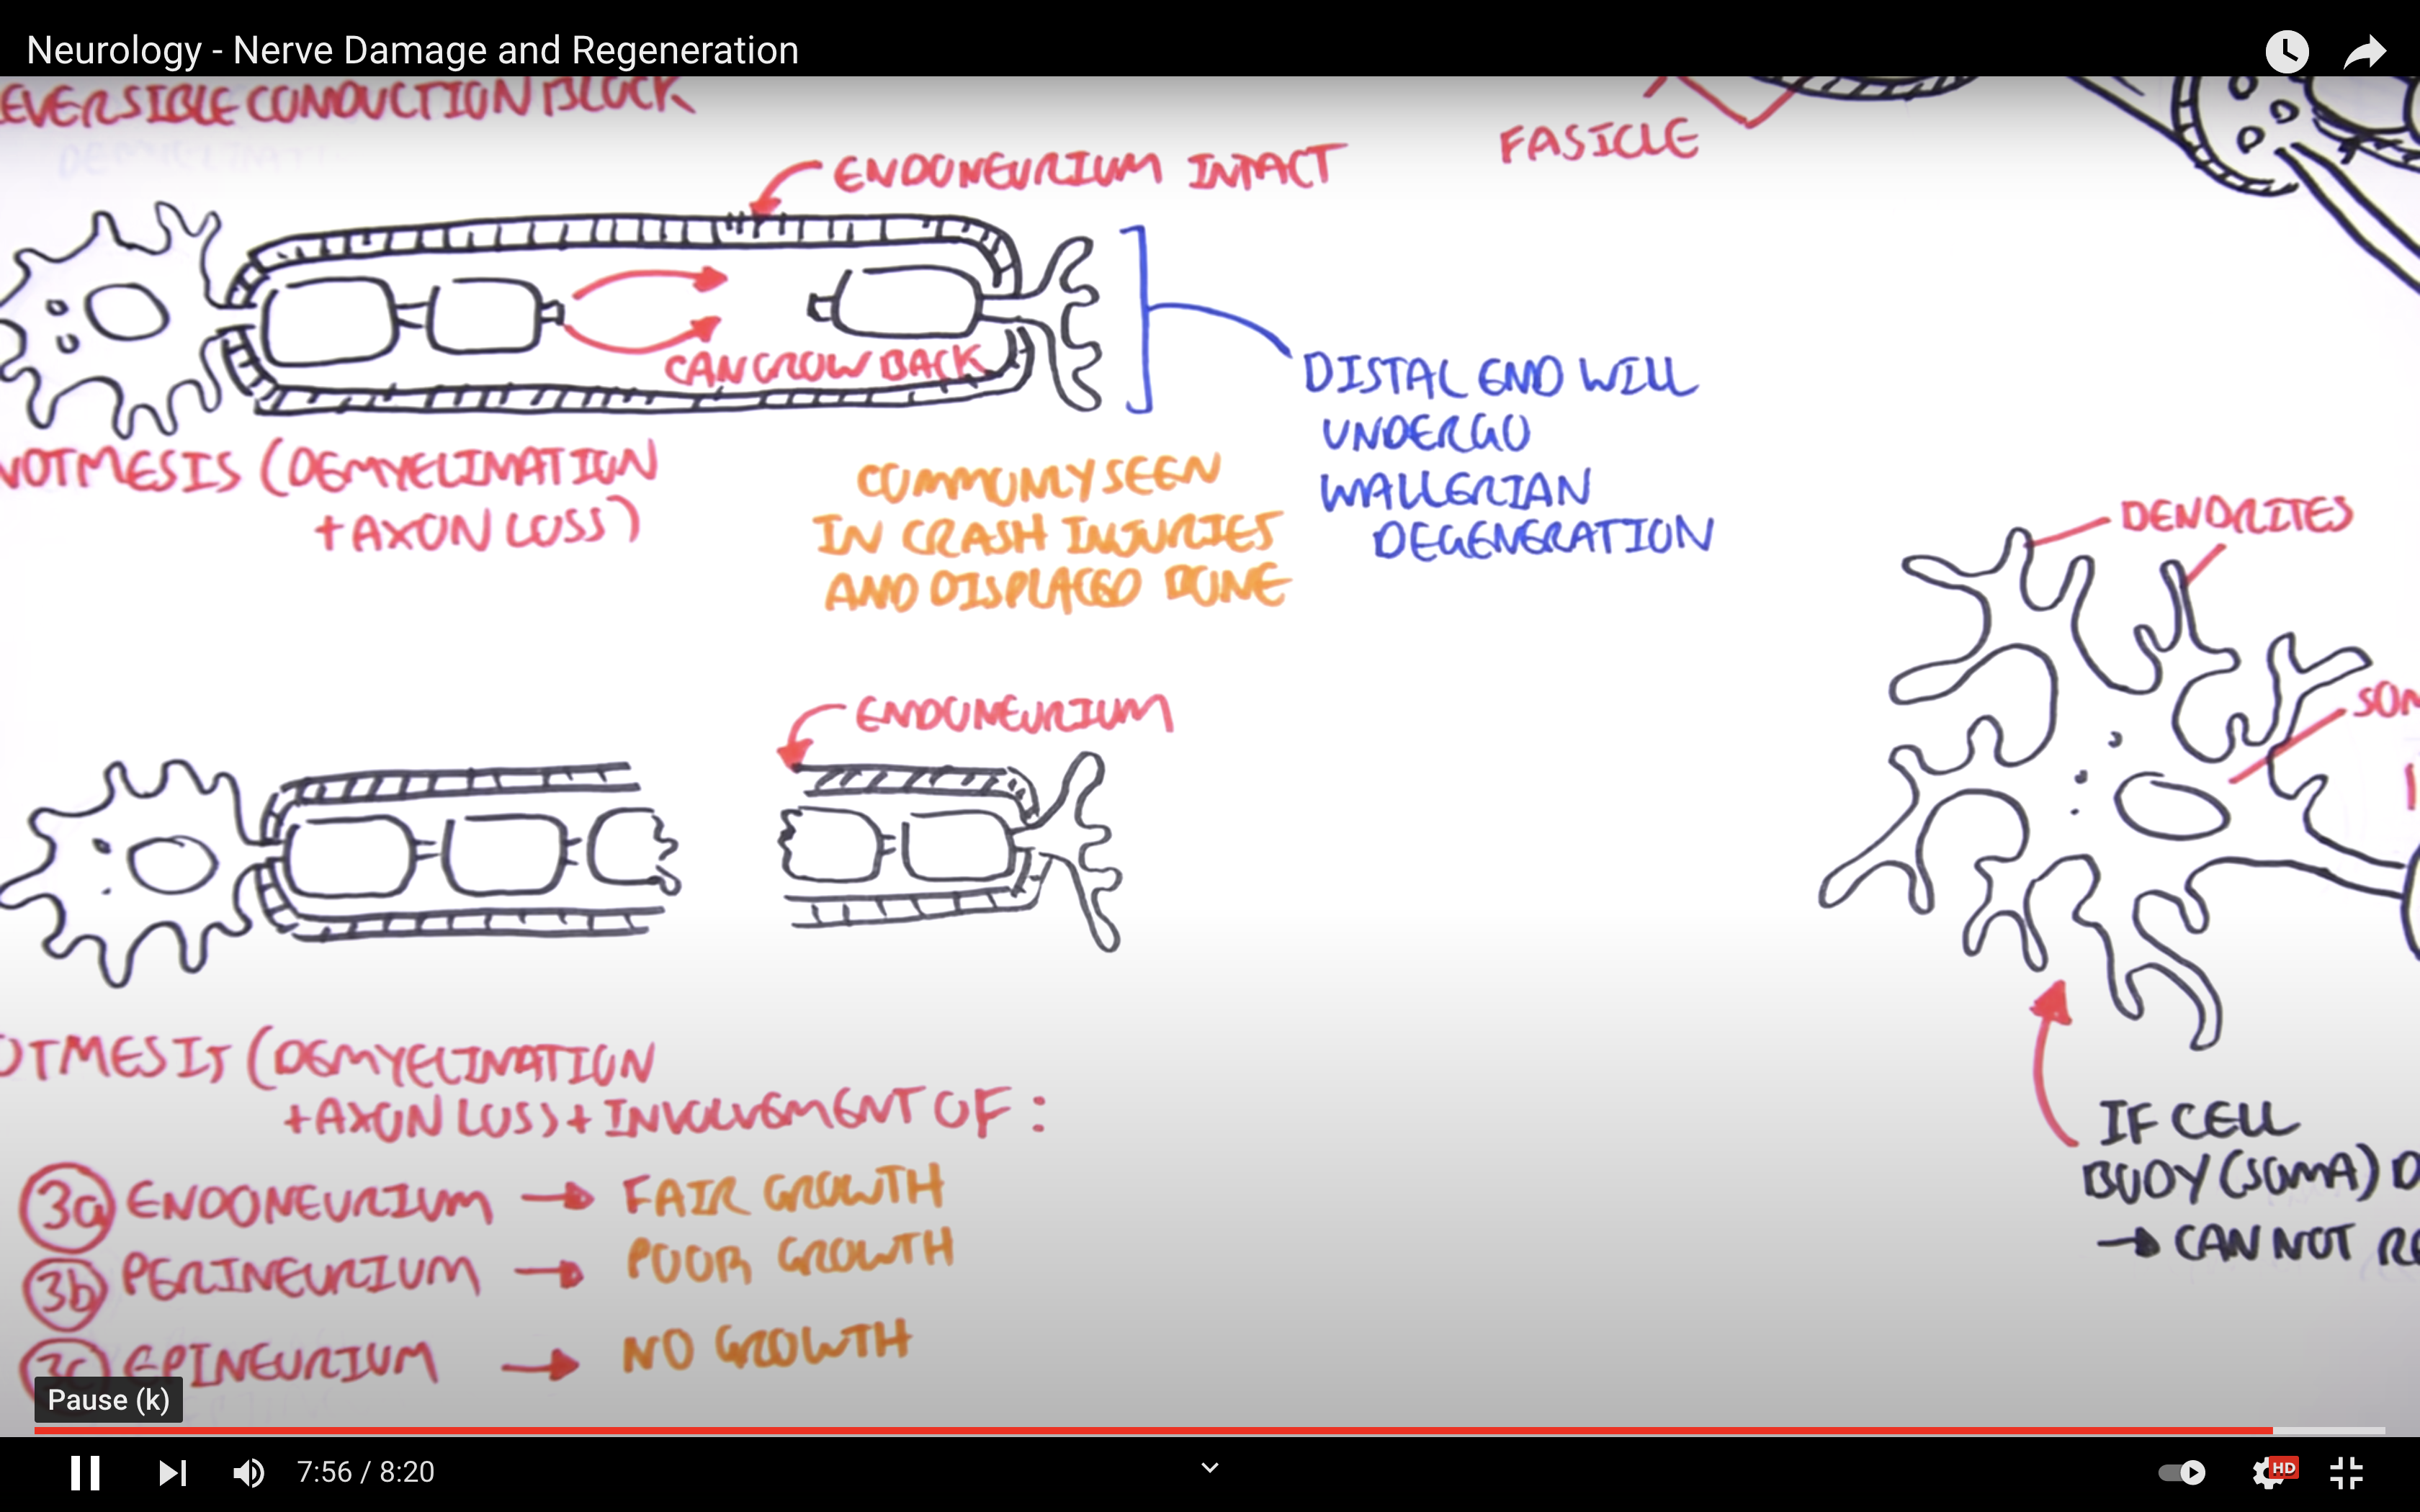 Neurology - Nerve Damage and Regeneration
EVERSIBLE CONDUCTION BLOCK
FASICLE
ENDONEURIUM INTACT
CAN GROW BACK
DISTAL END WILL
UNDERGO
WALLERIAN
DEGENERATION
NOTMESIS (DEMYELINATION
+ AXON LOSS)
COMMONLY SEEN
IN CRASH INJURIES
AND DISPLACED BONE
DENDRITES
SOM
ENDONEURIUM
OTMESIS (DEMYELINATION
+ AXON LOSS + INVOLVEMENT OF :
3a ENDONEURIUM → FAIR GROWTH
3b PERINEURIUM → POOR GROWTH
3c EPINEURIUM → NO GROWTH
IF CELL
BODY (SOMA) D
→ CAN NOT RE
Pause (k)
7:56 / 8:20
HD